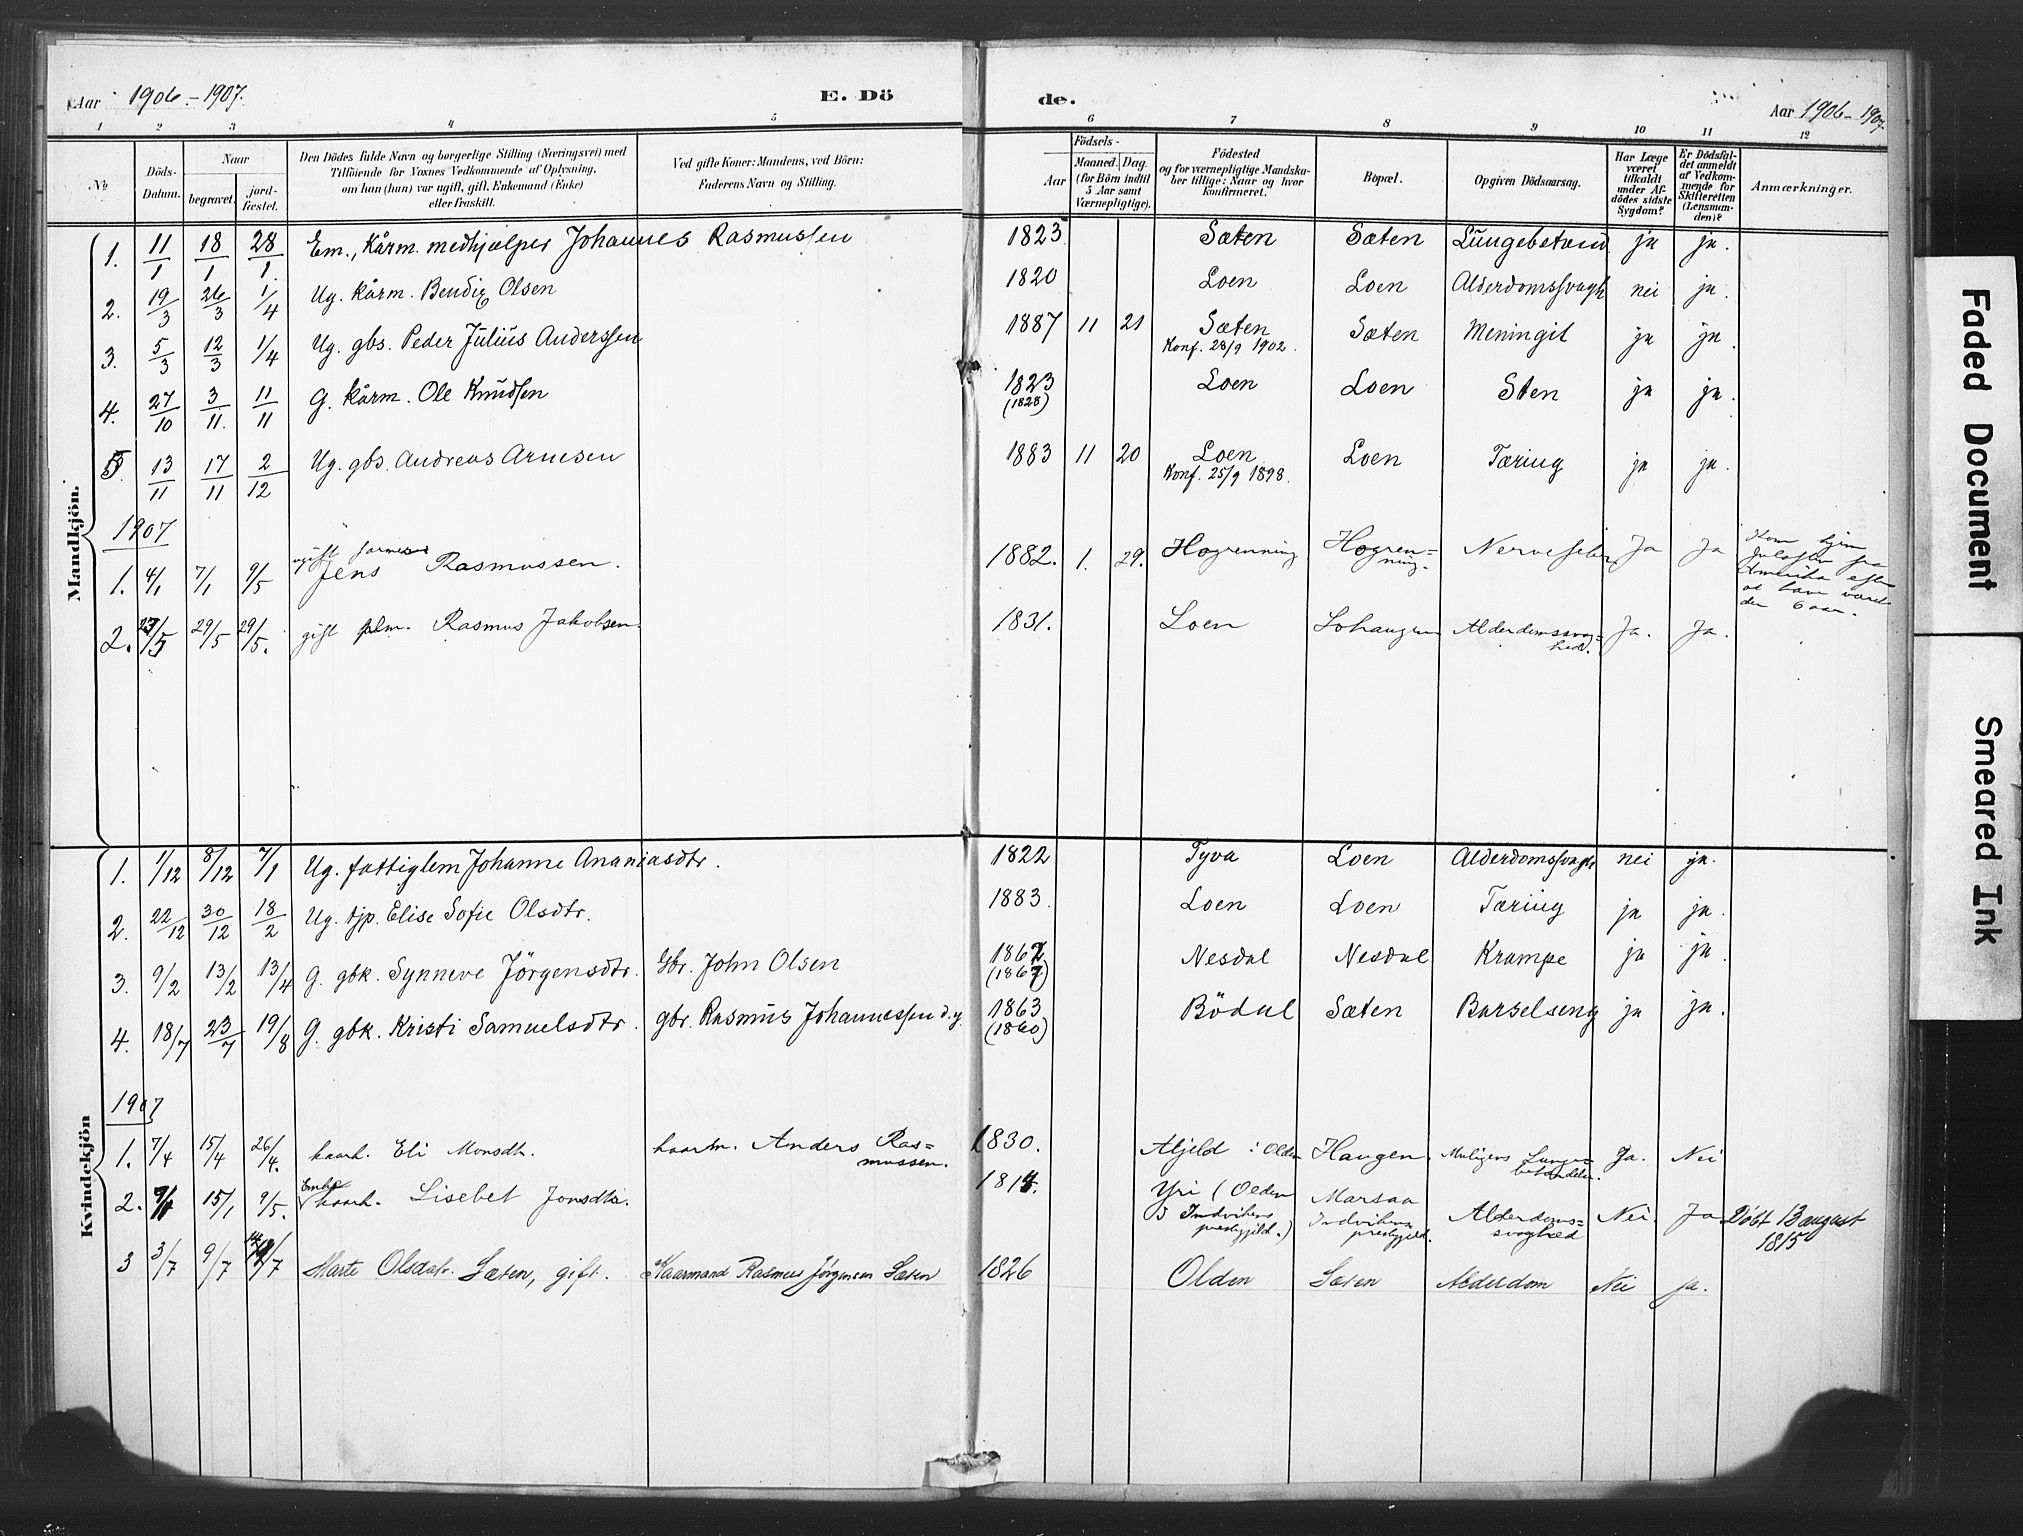 Aar 1906-1907. E. Dö de. Aar 1906-1907.
1 2 3 4 5 6 7 8 9 10 11 12
No
Döds-Datum.
Naar
begravet. jord-fæstet.
Den Dödes fulde Navn og borgerlige Stilling (Næringsvei) med
Tilföiende for Voxnes Vedkommende af Oplysning,
om han (hun) var ugift, gift, Enkemand (Enke)
eller fraskilt.
Ved gifte Koner: Mandens, ved Börn:
Faderens Navn og Stilling.
Födsels-
Aar Maaned. Dag.
(for Börn indtil
5 Aar samt
Værnepligtige).
Födested
og for værnepligtige Mandska-
ber tillige: Naar og hvor
konfirmeret.
Bopæl.
Opgiven Dödsaarsag.
Har Læge
været
tilkaldt
under Af-
dödes sidste
Sygdom?
Er Dödsfal-
det anmeldt
af Vedkom-
mende for
Skifteretten
(Lensman-
den)?
Anmærkninger.
Mandkjön.
1. 11/1 18/1 28/1. Em., Kårm. medhjælper Johannes Rasmussen 1823 Sæten Sæten Lungebetænd ja ja.
2. 19/3 26/3 1/4 Ug. kårm. Bendix Olsen 1820 Loen Loen Alderdomssvagh nei ja.
3. 5/3 12/3 1/4 Ug. gbs. Peder Julius Anderssen 1887 11 21 Sæten Sæten Meningit ja ja.
Konf. 28/9 1902.
4. 27/10 3/11. 11/11 G. kårm. Ole Knudsen 1823 Loen Loen Sten ja ja.
(1828)
5. 13/11 17/11 2/12 Ug. gbs. Andreas Arnesen 1883 11 20 Loen Loen Tæring ja ja.
Konf. 25/9 1898.
1907
1. 4/1 7/1 9/5 ugift Jens Rasmussen. 1882. 1. 29. Hogrenning Hogren=
ning. Ja Ja Kom hjem
Juleaften fra
Amerika efter
at have været
der 6 aar.
2. 23/5 29/5 29/5. gift Rasmus Jakobsen. 1831. Loen Lohaugen Alderdomssvag=
hed. Ja. Ja.
Kvindekjön
1. 1/12 8/12 7/1 Ug. fattiglem Johanne Ananiasdtr. 1822 Tyva Loen Alderdomssvagh nei ja.
2. 22/12 30/12 18/2 Ug. tjp. Elise Sofie Olsdtr. 1883. Loen Loen Tæring ja ja.
3. 9/2 13/2 13/4 G. gbk. Synneve Jörgensdtr. Gbr. John Olsen 1862 Nesdal Nesdal Krampe ja ja.
(1867)
4. 18/7 23/7 19/8 G. gbk. Kristi Samuelsdtr. gbr. Rasmus Johannessen d.y. 1863 Bödal Sæten Barselseng ja ja.
(1860)
1907
1. 7/4 15/4 26/4. kaark. Eli Monsdtr. kaarm. Anders Ras=
mussen. 1830. i Olden Haugen. Muligens Lunge-
betændelse. Ja. Nei
2. 15/1 9/5. Enke
kaark. Lisebet Jonsdtr. 1814. Yri (Olden
i Indvikens
prestgjeld.) Marsaa
Indvikens
prestgjeld. Alderdoms=
svaghed Nei. Ja. Döbt 13 august
1815
3 3/7 9/7 14/7 Marte Olsdatr. Sæten, gift. Kaarmand Rasmus Jørgensen Sæten 1826 Olden Sæten Alderdom Nei ja.
Faded Document
Smeared Ink